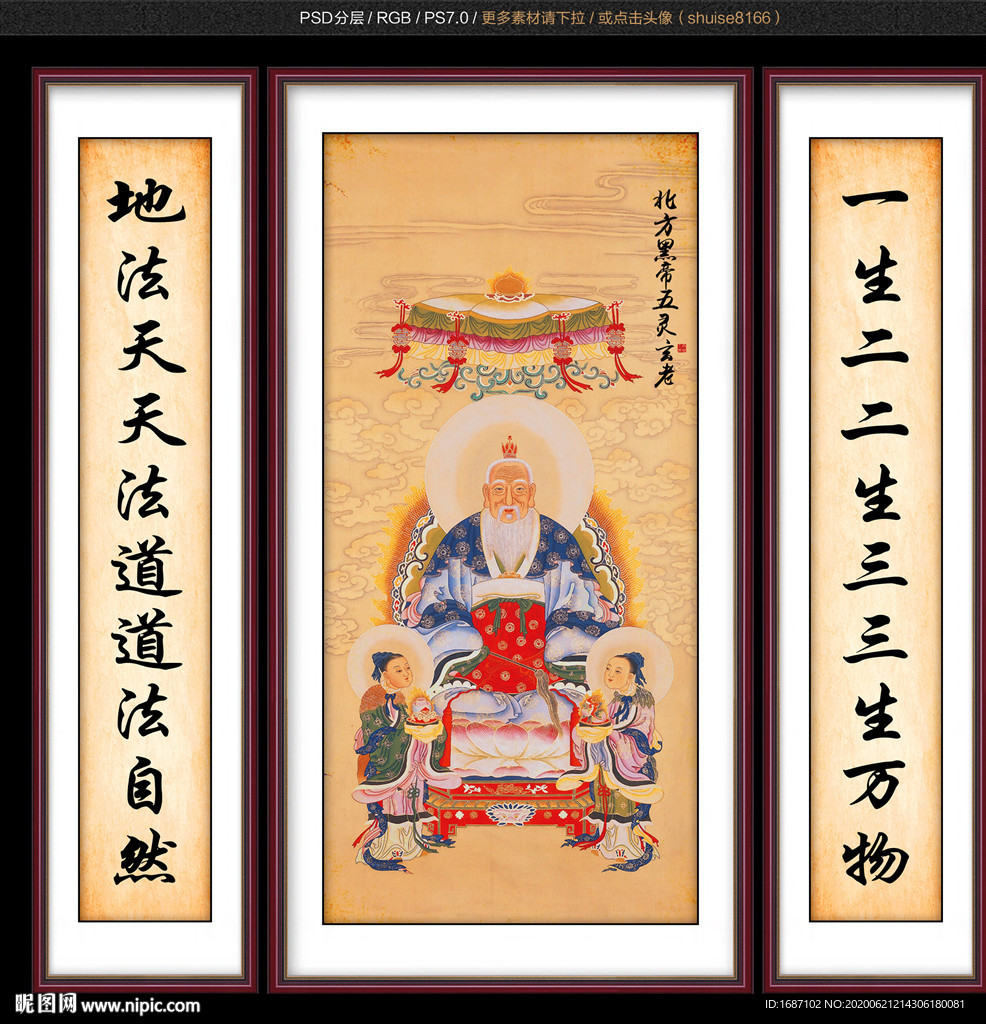 PSD分层 / RGB / PS7.0 / 更多素材请下拉 / 或点击头像（shuise8166）
一生二二生三三生万物
北方黑帝五灵玄老
地法天天法道道法自然
昵图网 www.nipic.com
ID:1687102 NO:20200621214306180081